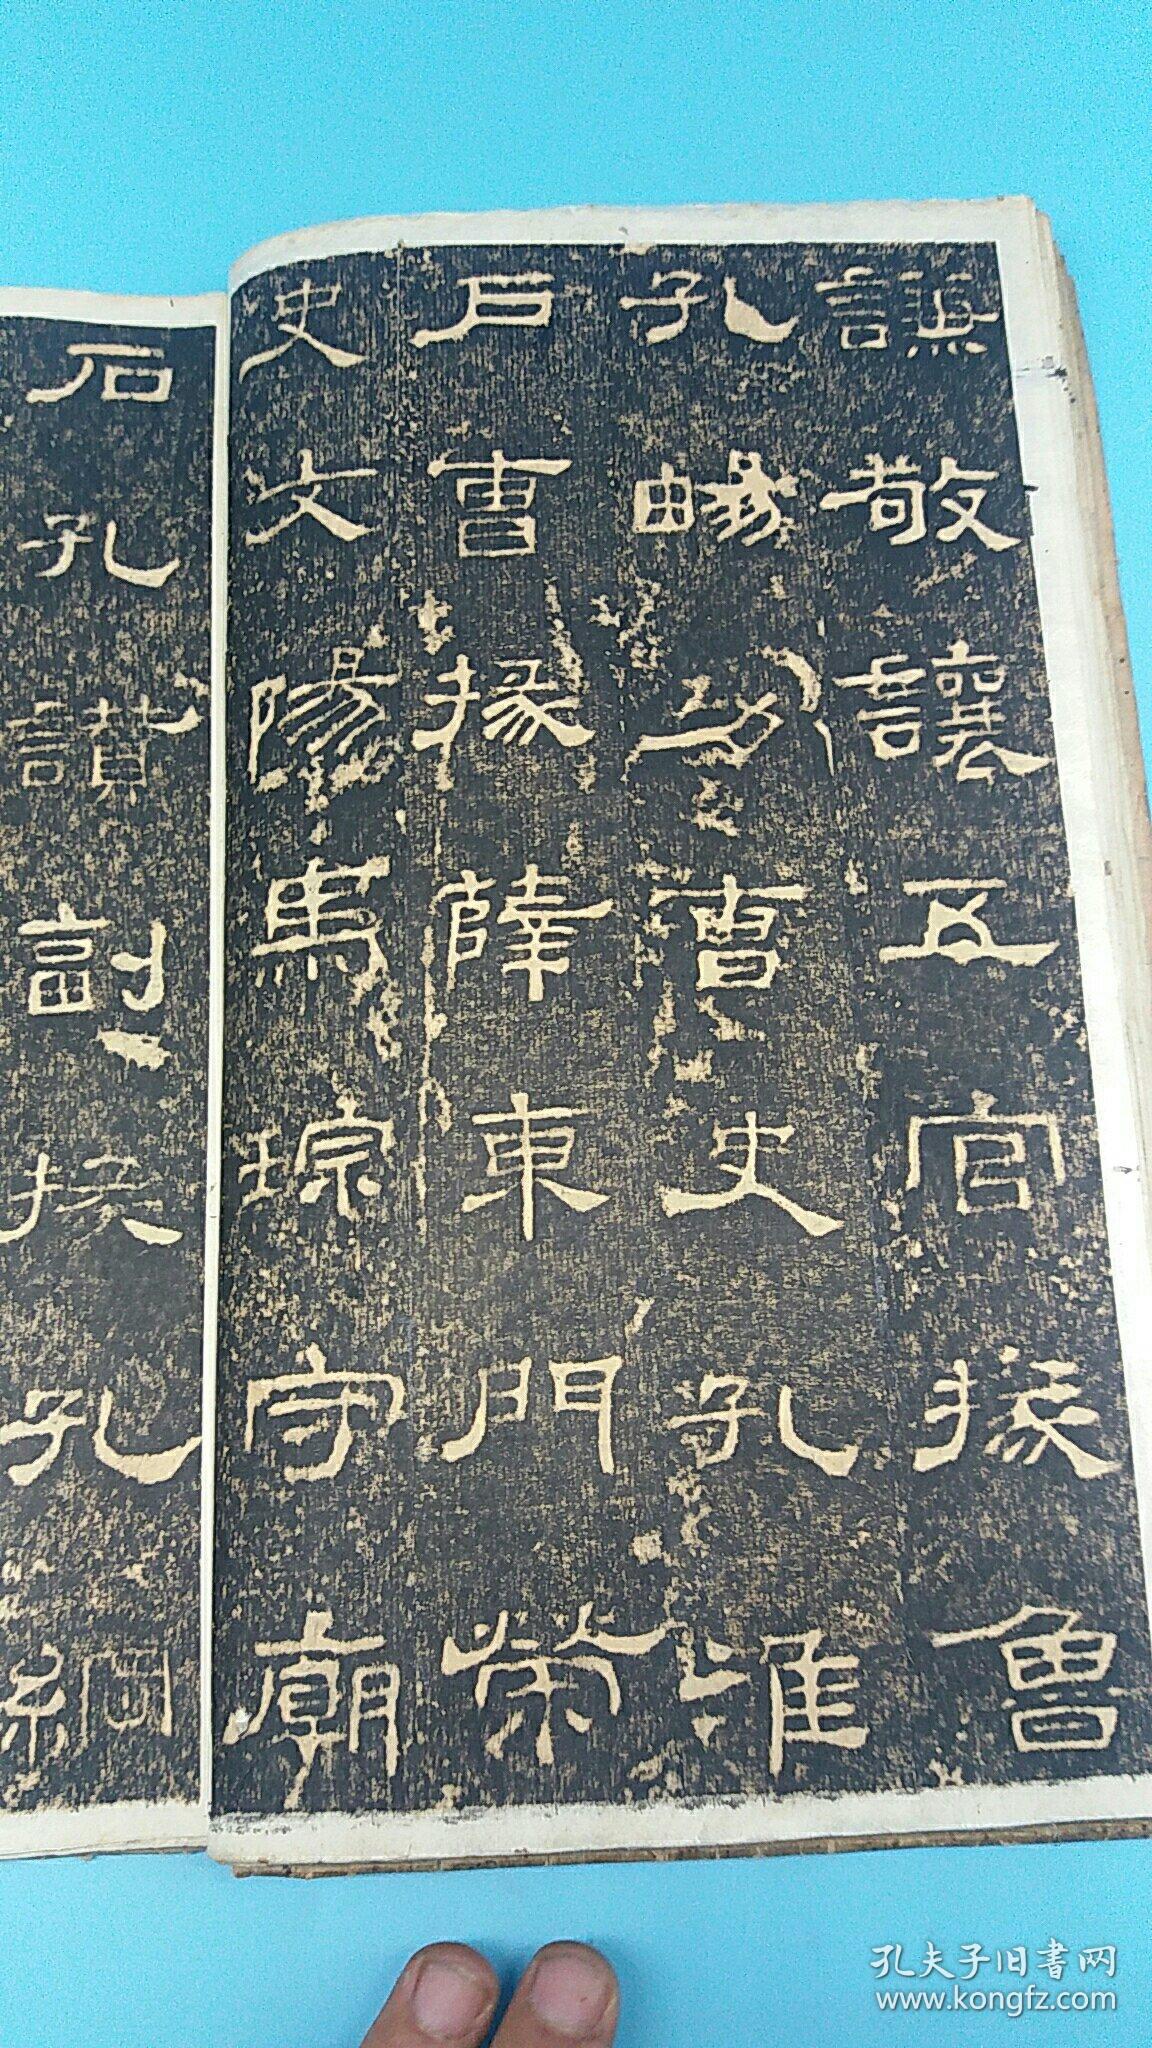 譙敬讓五官掾魯
孔暢功曹史孔淮
戶曹掾薛東門榮
史文陽馬琮守廟
石孔讚副掾孔綱
孔夫子旧書网
www.kongfz.com